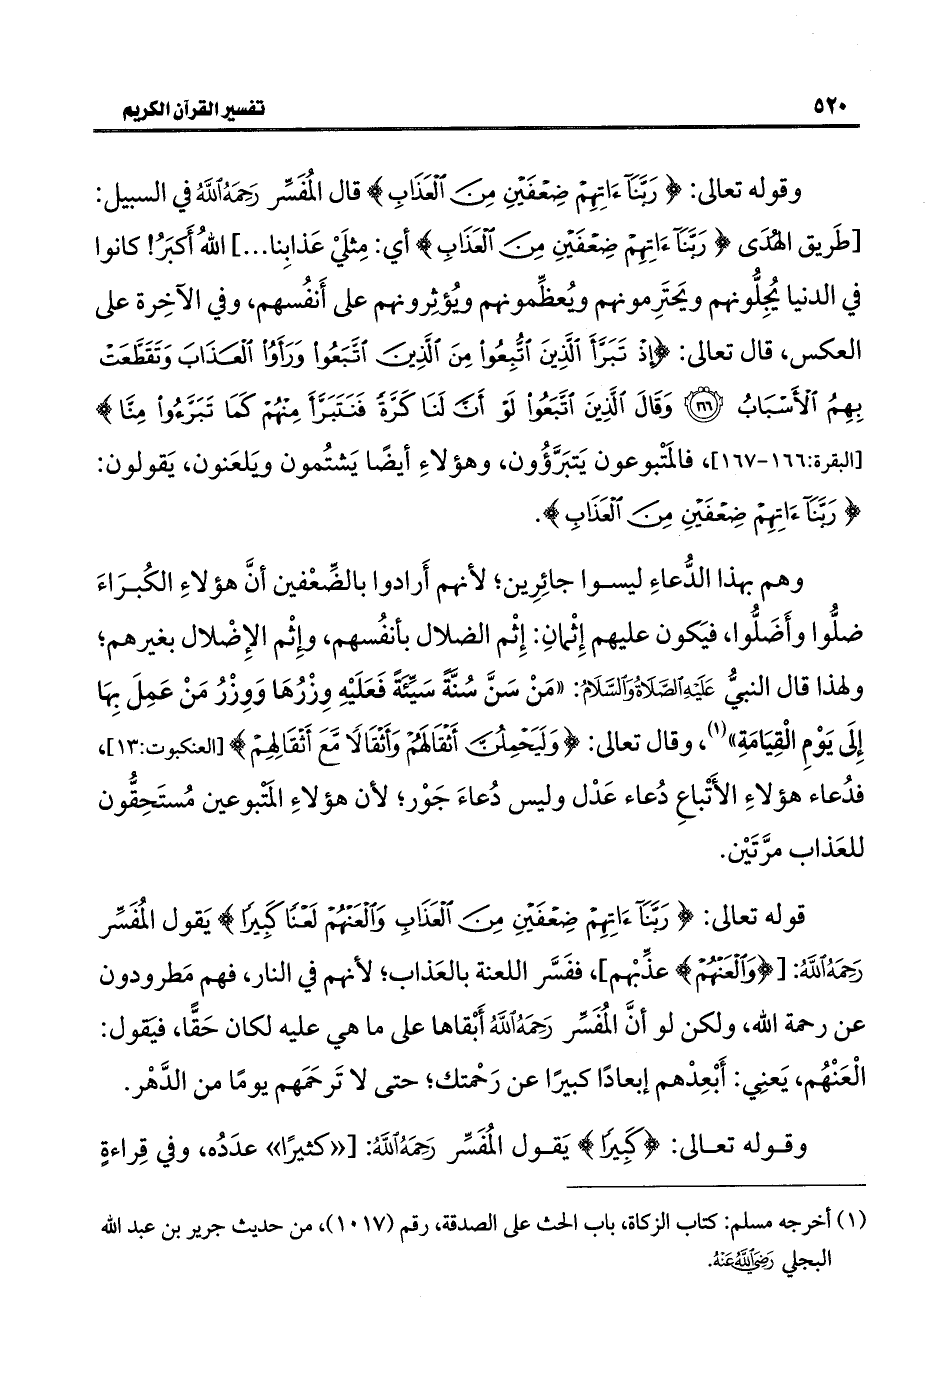 ٥٢٠ تفسير القرآن الكريم
وقوله تعالى: ﴿رَبَّنَآ ءَاتِهِمْ ضِعْفَيْنِ مِنَ ٱلْعَذَابِ﴾ قال المُفَسِّر رَحِمَهُ اللَّهُ في السبيل:
[طَريق الهُدَى ﴿رَبَّنَآ ءَاتِهِمْ ضِعْفَيْنِ مِنَ ٱلْعَذَابِ﴾ أي: مِثلَيْ عَذابِنا...] اللهُ أَكبَرُ! كانوا
في الدنيا يُجِلُّونهم ويَحتَرِمونهم ويُعظِّمونهم ويُؤثِرونهم على أَنفُسهم، وفي الآخِرة على
العكس، قال تعالى: ﴿إِذْ تَبَرَّأَ ٱلَّذِينَ ٱتُّبِعُوا۟ مِنَ ٱلَّذِينَ ٱتَّبَعُوا۟ وَرَأَوُا۟ ٱلْعَذَابَ وَتَقَطَّعَتْ
بِهِمُ ٱلْأَسْبَابُ ﴿١٦٦﴾ وَقَالَ ٱلَّذِينَ ٱتَّبَعُوا۟ لَوْ أَنَّ لَنَا كَرَّةً فَنَتَبَرَّأَ مِنْهُمْ كَمَا تَبَرَّءُوا۟ مِنَّا﴾
[البقرة:١٦٦-١٦٧]، فالمَتْبوعون يَتبَرَّؤُون، وهؤلاءِ أيضًا يَشتُمون ويلعَنون، يَقولون:
﴿رَبَّنَآ ءَاتِهِمْ ضِعْفَيْنِ مِنَ ٱلْعَذَابِ﴾.
وهم بهذا الدُّعاءِ ليسوا جائِرين؛ لأنهم أَرادوا بالضِّعْفين أنَّ هؤلاءِ الكُبرَاءَ
ضلُّوا وأَضَلُّوا، فيَكون عليهم إِثْمانِ: إِثْم الضلال بأنفُسهم، وإِثْم الإِضْلال بغيرهم؛
ولهذا قال النبيُّ عَلَيْهِ الصَّلَاةُ وَالسَّلَامُ: «مَنْ سَنَّ سُنَّةً سَيِّئَةً فَعَلَيْهِ وِزْرُهَا وَوِزْرُ مَنْ عَمِلَ بِهَا
إِلَى يَوْمِ الْقِيَامَةِ»(١)، وقال تعالى: ﴿وَلَيَحْمِلُنَّ أَثْقَالَهُمْ وَأَثْقَالًا مَّعَ أَثْقَالِهِمْ﴾ [العنكبوت:١٣]،
فدُعاء هؤلاءِ الأَتْباعِ دُعاء عَدْل وليس دُعاءَ جَوْر؛ لأن هؤلاءِ المَتْبوعين مُستَحِقُّون
للعَذاب مرَّتَيْن.
قوله تعالى: ﴿رَبَّنَآ ءَاتِهِمْ ضِعْفَيْنِ مِنَ ٱلْعَذَابِ وَٱلْعَنْهُمْ لَعْنًا كَبِيرًا﴾ يَقول المُفَسِّر
رَحِمَهُ اللَّهُ: [﴿وَٱلْعَنْهُمْ﴾ عذِّبْهم]، ففَسَّر اللعنة بالعَذاب؛ لأنهم في النار، فهم مَطرودون
عن رحمة الله، ولكن لو أنَّ المُفَسِّر رَحِمَهُ اللَّهُ أَبْقاها على ما هي عليه لكان حَقًّا، فيَقول:
الْعَنْهُم، يَعنِي: أَبعِدْهم إبعادًا كبيرًا عن رَحْمتك؛ حتى لا تَرحَمَهم يومًا من الدَّهْر.
وقوله تعالى: ﴿كَبِيرًا﴾ يَقول المُفَسِّر رَحِمَهُ اللَّهُ: [«كثيرًا» عدَدُه، وفي قِراءةٍ
(١) أخرجه مسلم: كتاب الزكاة، باب الحث على الصدقة، رقم (١٠١٧)، من حديث جرير بن عبد الله
البجلي رَضِيَ اللَّهُ عَنْهُ.